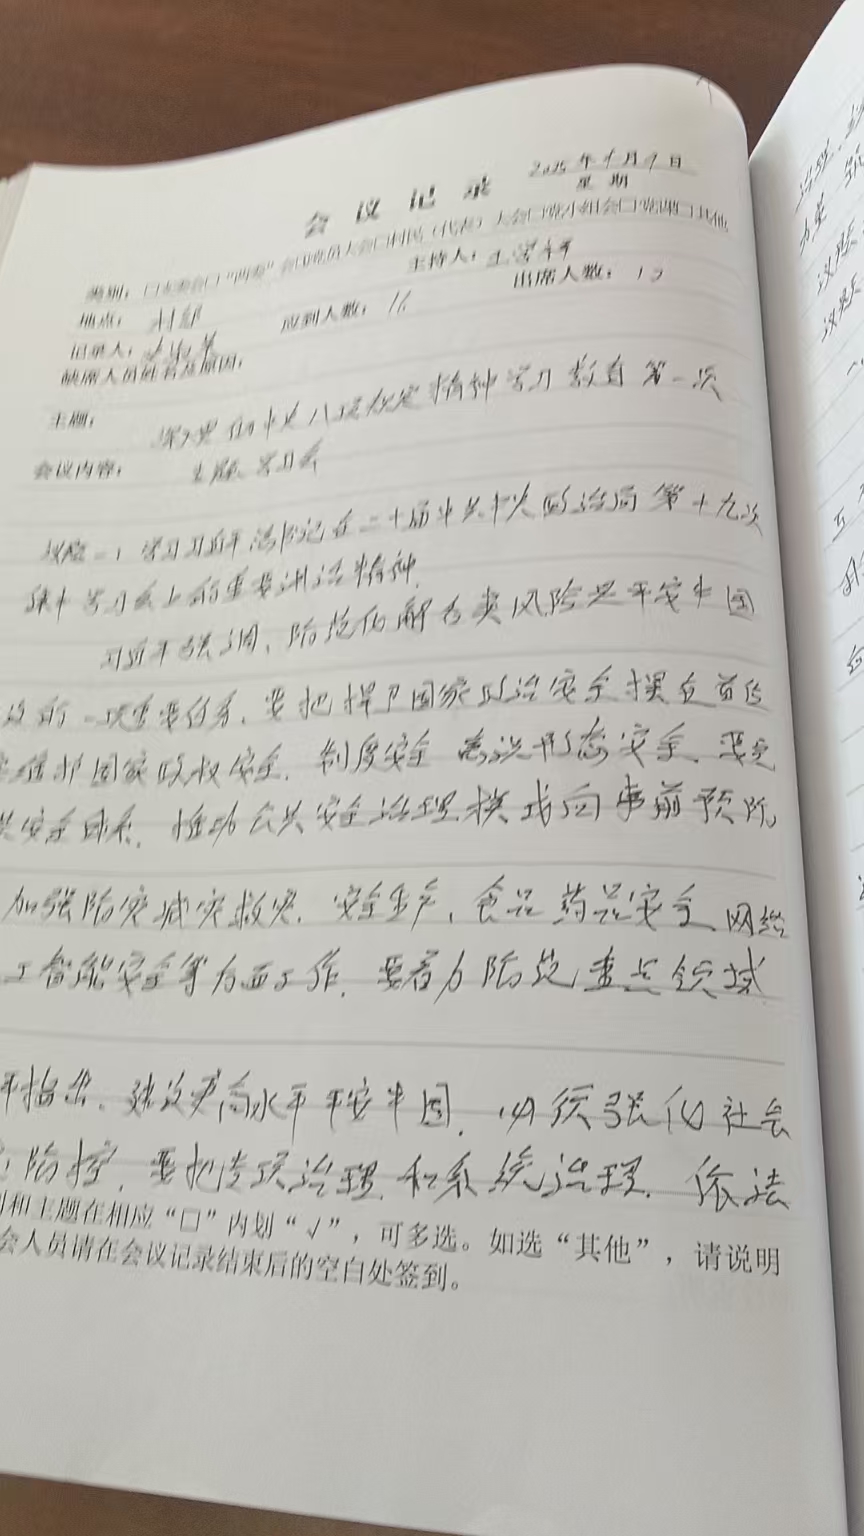 会 议 记 录
2025 年 4 月 9 日
星 期
类别：□支委会□“两委”会□党员大会□村民（代表）大会□党小组会□党课□其他
地点： 村部
主持人：
应到人数：
出席人数：
记录人：
缺席人员姓名及原因：
主题： 深入贯彻中央八项规定精神学习教育第一次
会议内容： 主题学习会
议题一：学习习近平总书记在二十届中共中央政治局第十九次
集中学习会上的重要讲话精神.
习近平强调，防范化解各类风险是平安中国
设的一项重要任务.要把捍卫国家政治安全摆在首位
维护国家政权安全.制度安全 意识形态安全.要完
共安全体系.推动公共安全治理模式向事前预防
加强防灾减灾救灾.安全生产，食品药品安全.网络
工智能安全等方面工作.要着力防范重点领域
平指出.建设更高水平平安中国.必须强化社会
防控.要把专项治理和系统治理.依法
和主题在相应“□”内划“√”，可多选。如选“其他”，请说明
会人员请在会议记录结束后的空白处签到。